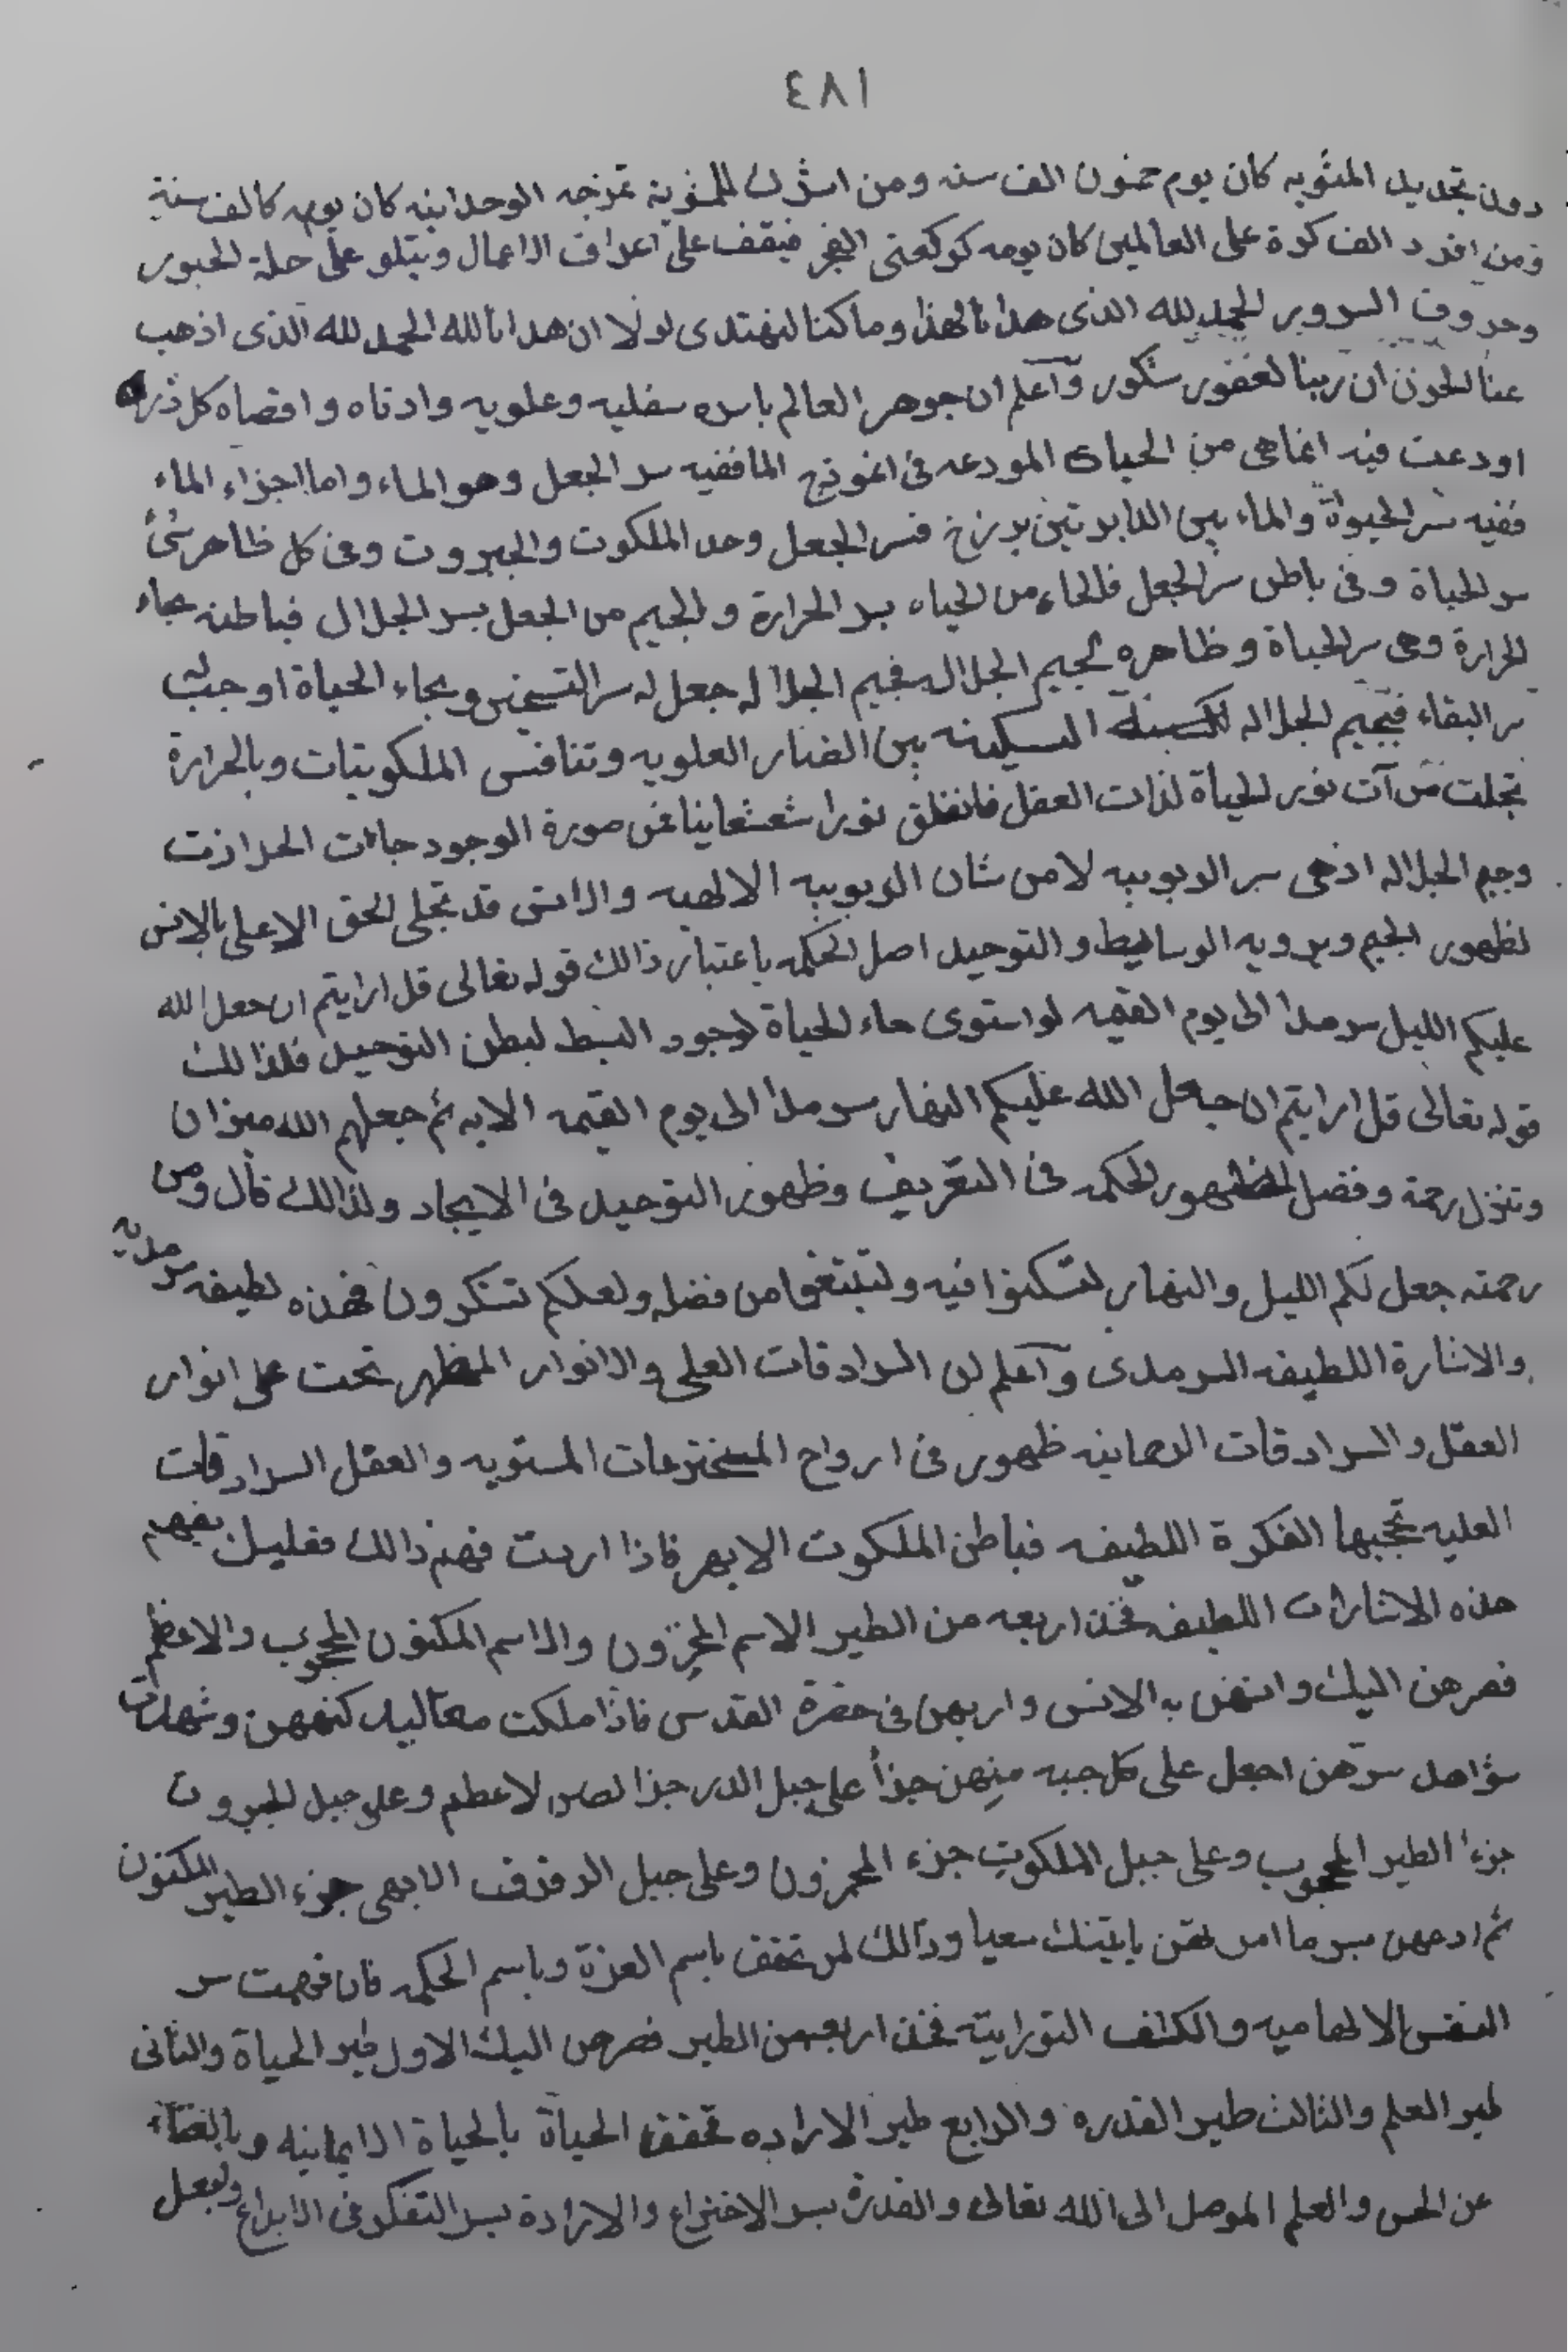 ٤٨١
دون تجديد المثويه كان يوم خمسون الف سنه ومن اشرك للمثوية تمزجه الوحدانيه كان يومه كالف سنة
ومن افرد الف كرة على العالمين كان يومه كركعتى الفجر فيقف على اعراف الاعمال ويتلو على حلة الحبور
وحروف السرور الحمد لله الذى هدانا لهذا وما كنا لنهتدى لولا ان هدانا الله الحمد لله الذى اذهب
عنا الحزن ان ربنا لغفور شكور واعلم ان جوهر العالم باسره سفليه وعلويه وادناه واقصاه كل ذره
اودعت فيه انما هى من الحياة المودعه فى انموذج الما ففيه سر الجعل وهو الماء واما اجزاء الماء
ففيه سر الحيوة والماء بين الدابرتين برزخ فسر الجعل وحد الملكوت والجبروت وفى كل ظاهر شئ
سر الحياة وفى باطن سر الجعل فالحاء من الحياه بسر الحرارة والجيم من الجعل بسر الجلال فباطنه حاء
الحرارة وهى سر الحياة وظاهره لجيم الجلاله فجيم الجلاله جعل له سر التسخير وبحاء الحياة اوجب له
سر البقاء فبجيم الجلاله السكينه بين العلويه وتنافس الملكوتيات وبالحرارة
تجلت من آت نور الحياة لذات العقل فانفلق نورا شعشعاينا عن صورة الوجود جاءت الحرازت
وجيم الجلاله اذ هى سر الربوبيه لا من شان الربوبيه الالهيه والانتى قد تجلى الحق الاعلى بالانس
لظهور الجيم وبرويه الوسائط والتوحيد اصل الحكمه باعتبار ذالك قوله تعالى قل ارايتم ان جعل الله
عليكم الليل سرمدا الى يوم القيمه لو استوى حاء الحياة لوجود البسط لبطن التوحيد فلذالك
قوله تعالى قل ارايتم ان جعل الله عليكم النهار سرمدا الى يوم القيمه الايه ثم جعلهم الله ميزان
وتنزل رحمة وفضل لظهور الحكمه فى التعريف وظهور التوحيد فى الايجاد ولذالك قال ومن
رحمته جعل لكم الليل والنهار لتسكنوا فيه ولتبتغوا من فضله ولعلكم تشكرون فهذه لطيفه سرمديه
والاشارة اللطيفه السرمدى واعلم ان السرادقات العلى والانوار المظهر تحت على انوار
العقل والسرادقات الدهانيه ظهور فى ارواح المخترعات المستويه والعقل السرادقات
العليه تحجبها الفكرة اللطيفه فباطن الملكوت الابهر فاذا اردت فهم ذالك فعليك بفهم
هذه الاشارات اللطيفه فخذ اربعه من الطير الاسم المخزون والاسم المكنون المحجوب والاعظم
فصرهن اليك وانهض به الانس واربهن فى حضرة القدس فاذا ملكت مقاليد كنههن وشهدت
شواهد سرهن اجعل على كل جبه منهن جزأ على جبل الدر جزا لاعظم وعلى جبل الجبروت
جزءا الطير المحجوب وعلى جبل الملكوت جزء المخزون وعلى جبل الرفرف الابهى جزء الطير المكنون
ثم ادعهن بسر ما امر ياتينك سعيا وذالك لمن تحقق باسم العزة وباسم الحكيم فان فهمت سر
النفس الالهاميه والكثف النورانيته فخذ اربعه من الطير فصرهن اليك الاول طير الحياة والثانى
طير العلم والثالث طير القدره والرابع طير الاراده تحقق الحياة بالحياة الايمانيه وبالغناء
عن الحس والعلم الموصل الى الله تعالى والقدرة بسر الاختراع والارادة بسر التفكر فى الابداع ولبعل